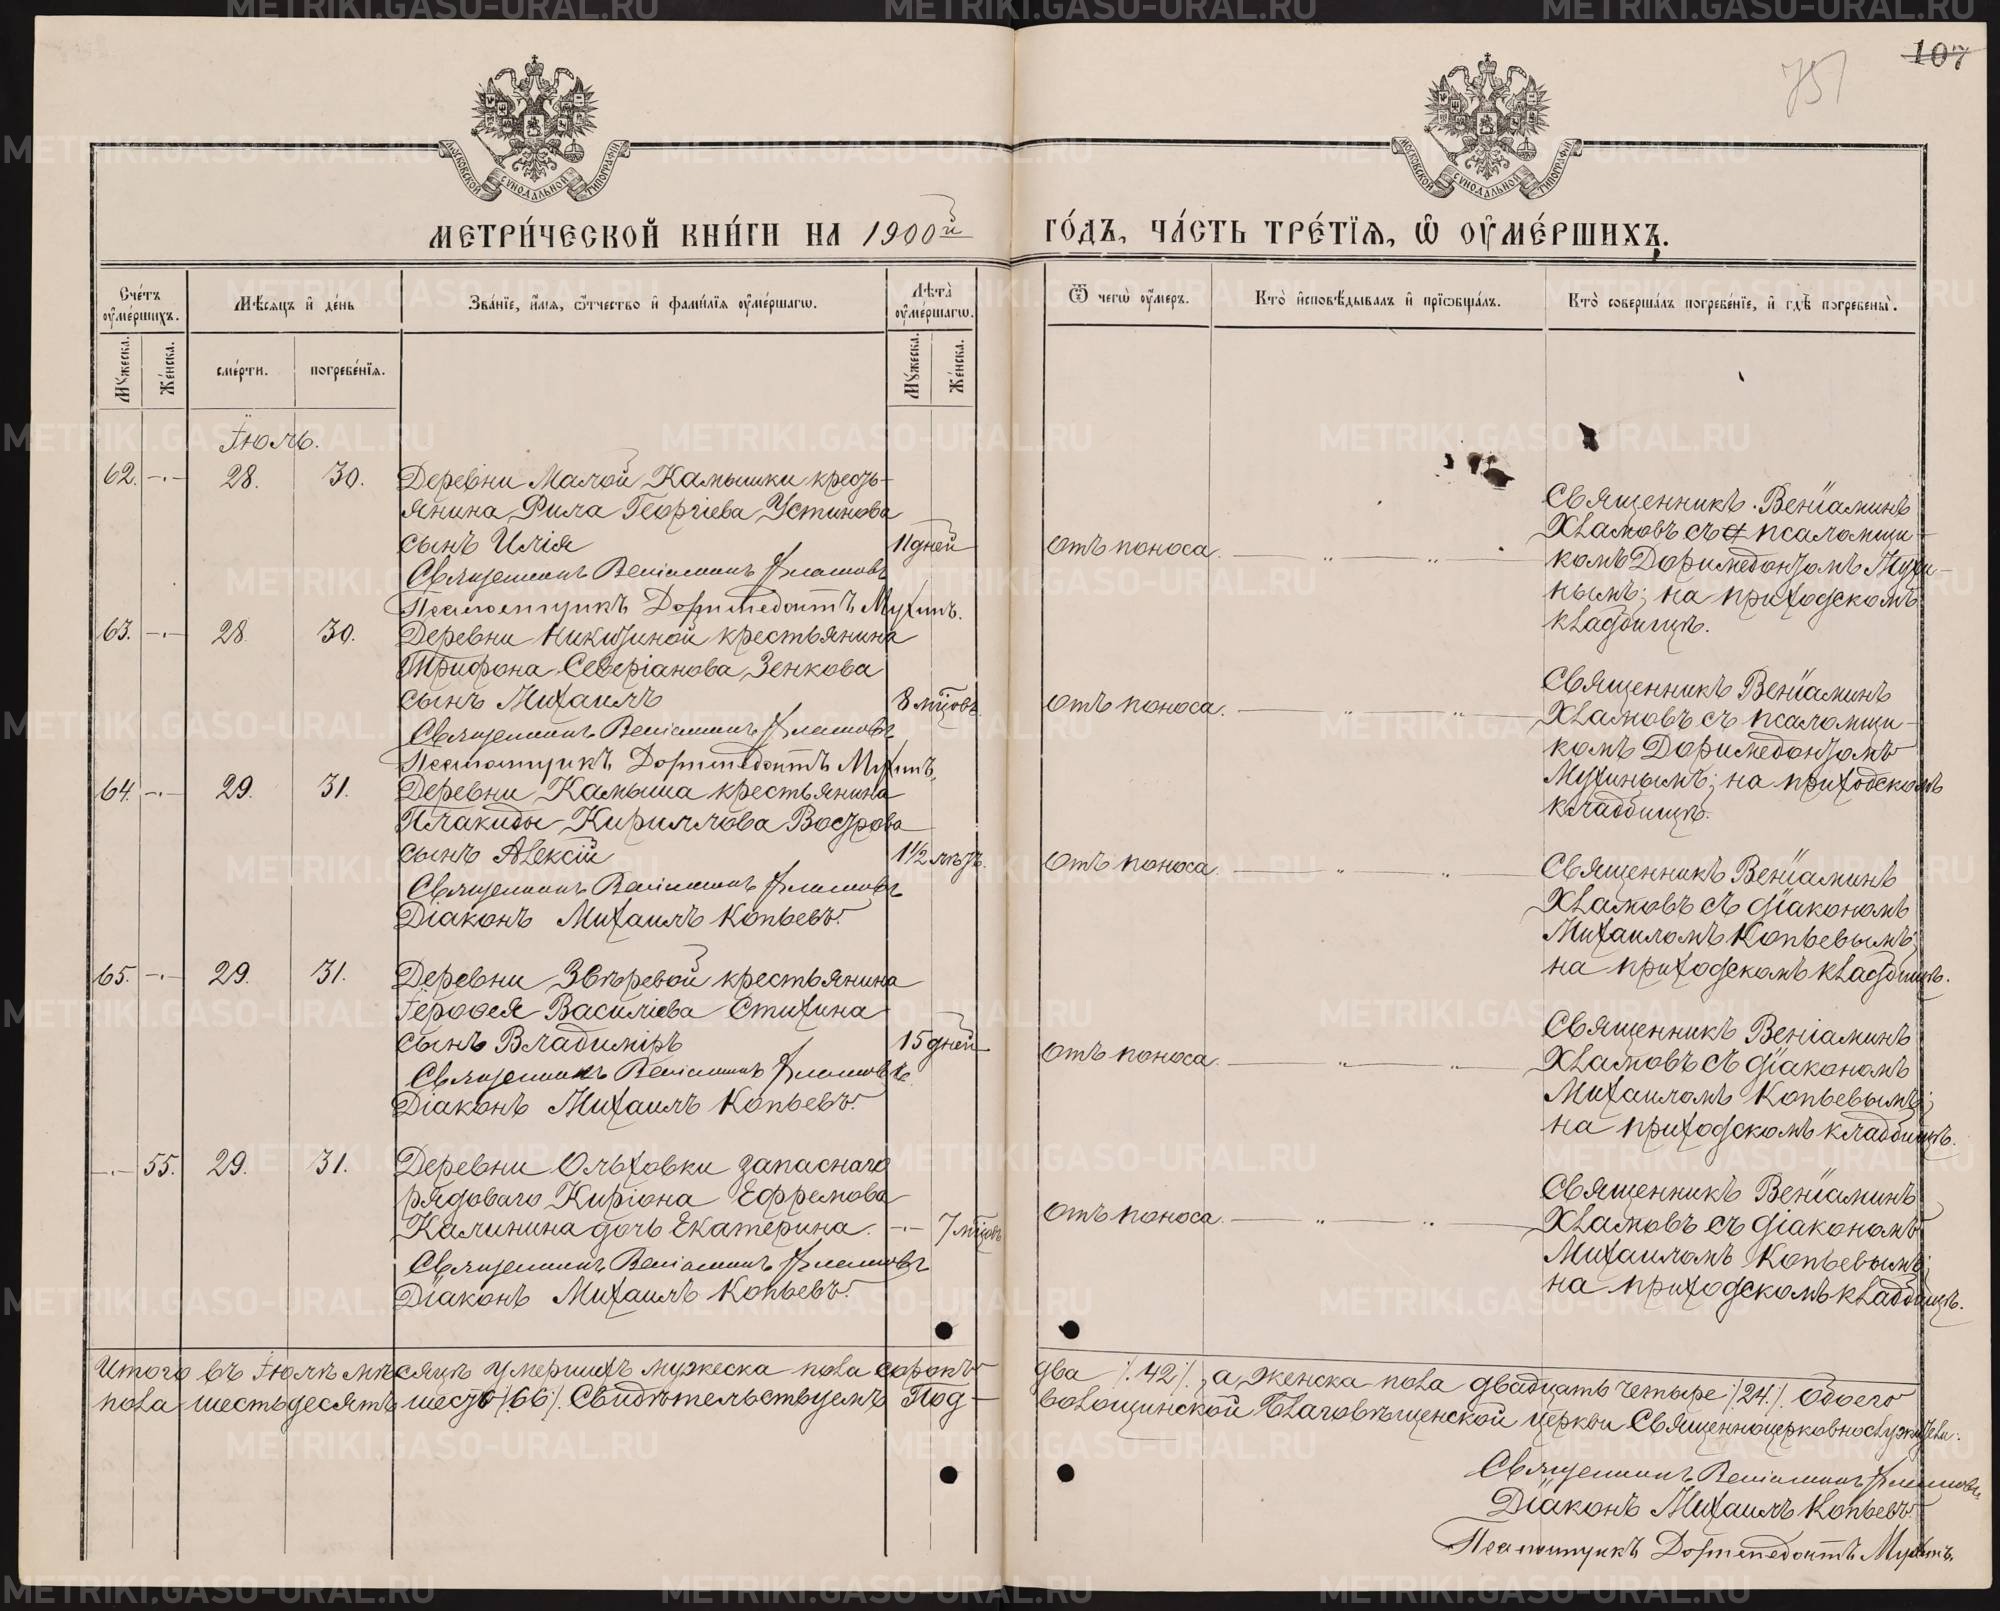 107
75
МОСКОВСКОЙ СѴНОДАЛЬНОЙ ТИПОГРАФІИ
МОСКОВСКОЙ СѴНОДАЛЬНОЙ ТИПОГРАФІИ
МЕТРИ́ЧЕСКОЙ КНИ́ГИ НА 1900й
ГО́ДЪ, ЧА́СТЬ ТРЕ́ТІѦ, Ѡ ОУМЕ́РШИХЪ.
Сче́тъ оуме́ршихъ.
Мѣ́сяцъ и де́нь
Зва́нїе, и́мя, ѻ́тчество и фами́лїя оуме́ршагѡ.
Лѣта̀ оуме́ршагѡ.
Ѿ чегѡ̀ оу́меръ.
Кто̀ исповѣ́дывалъ и прїѡбща́лъ.
Кто̀ соверша́лъ погребе́нїе, и гдѣ̀ погребены̀.
Мꙋ́жеска.
Же́нска.
сме́рти.
погребе́нїя.
Мꙋ́жеска.
Же́нска.
Іюль.
62. -·- 28. 30. Деревни Малой Камышки кресть-
янина Рила Георгіева Устинова
сынъ Илія 11 дней Отъ поноса.
Священникъ Веніаминъ Хламовъ
Псаломщикъ Доримедонтъ Мухинъ.
Священникъ Веніаминъ
Хламовъ съ псаломщи-
комъ Доримедонтомъ Мухи-
нымъ; на приходскомъ
кладбищѣ.
63. -·- 28. 30. Деревни Никитиной крестьянина
Трифона Северіанова Зенкова
сынъ Михаилъ 8 мѣсцовъ Отъ поноса.
Священникъ Веніаминъ Хламовъ
Псаломщикъ Доримедонтъ Мухинъ.
Священникъ Веніаминъ
Хламовъ съ псаломщи-
комъ Доримедонтомъ
Мухинымъ; на приходскомъ
кладбищѣ.
64. -·- 29. 31. Деревни Камыша крестьянина
Плакиды Кириллова Вострова
сынъ Алексій 1½ лѣтъ. Отъ поноса.
Священникъ Веніаминъ Хламовъ
Діаконъ Михаилъ Копьевъ.
Священникъ Веніаминъ
Хламовъ съ діакономъ
Михаиломъ Копьевымъ;
на приходскомъ кладбищѣ.
65. -·- 29. 31. Деревни Звѣревой крестьянина
Іероѳея Василіева Стихина
сынъ Владиміръ 15 дней Отъ поноса.
Священникъ Веніаминъ Хламовъ
Діаконъ Михаилъ Копьевъ.
Священникъ Веніаминъ
Хламовъ съ діакономъ
Михаиломъ Копьевымъ;
на приходскомъ кладбищѣ.
-·- 55. 29. 31. Деревни Ольховки запаснаго
рядоваго Киріона Ефремова
Калинина дочь Екатерина. -·- 7 мѣсцовъ Отъ поноса.
Священникъ Веніаминъ Хламовъ
Діаконъ Михаилъ Копьевъ.
Священникъ Веніаминъ
Хламовъ съ діакономъ
Михаиломъ Копьевымъ;
на приходскомъ кладбищѣ.
Итого въ Іюлѣ мѣсяцѣ умершихъ мужеска пола сорокъ два /.42./, а женска пола двадцать четыре /.24./. Обоего
пола шестьдесятъ шесть /.66./. Свидѣтельствуемъ Под-волощинской Благовѣщенской церкви Священноцерковнослужители:
Священникъ Веніаминъ Хламовъ
Діаконъ Михаилъ Копьевъ.
Псаломщикъ Доримедонтъ Мухинъ.
METRIKI.GASO-URAL.RU